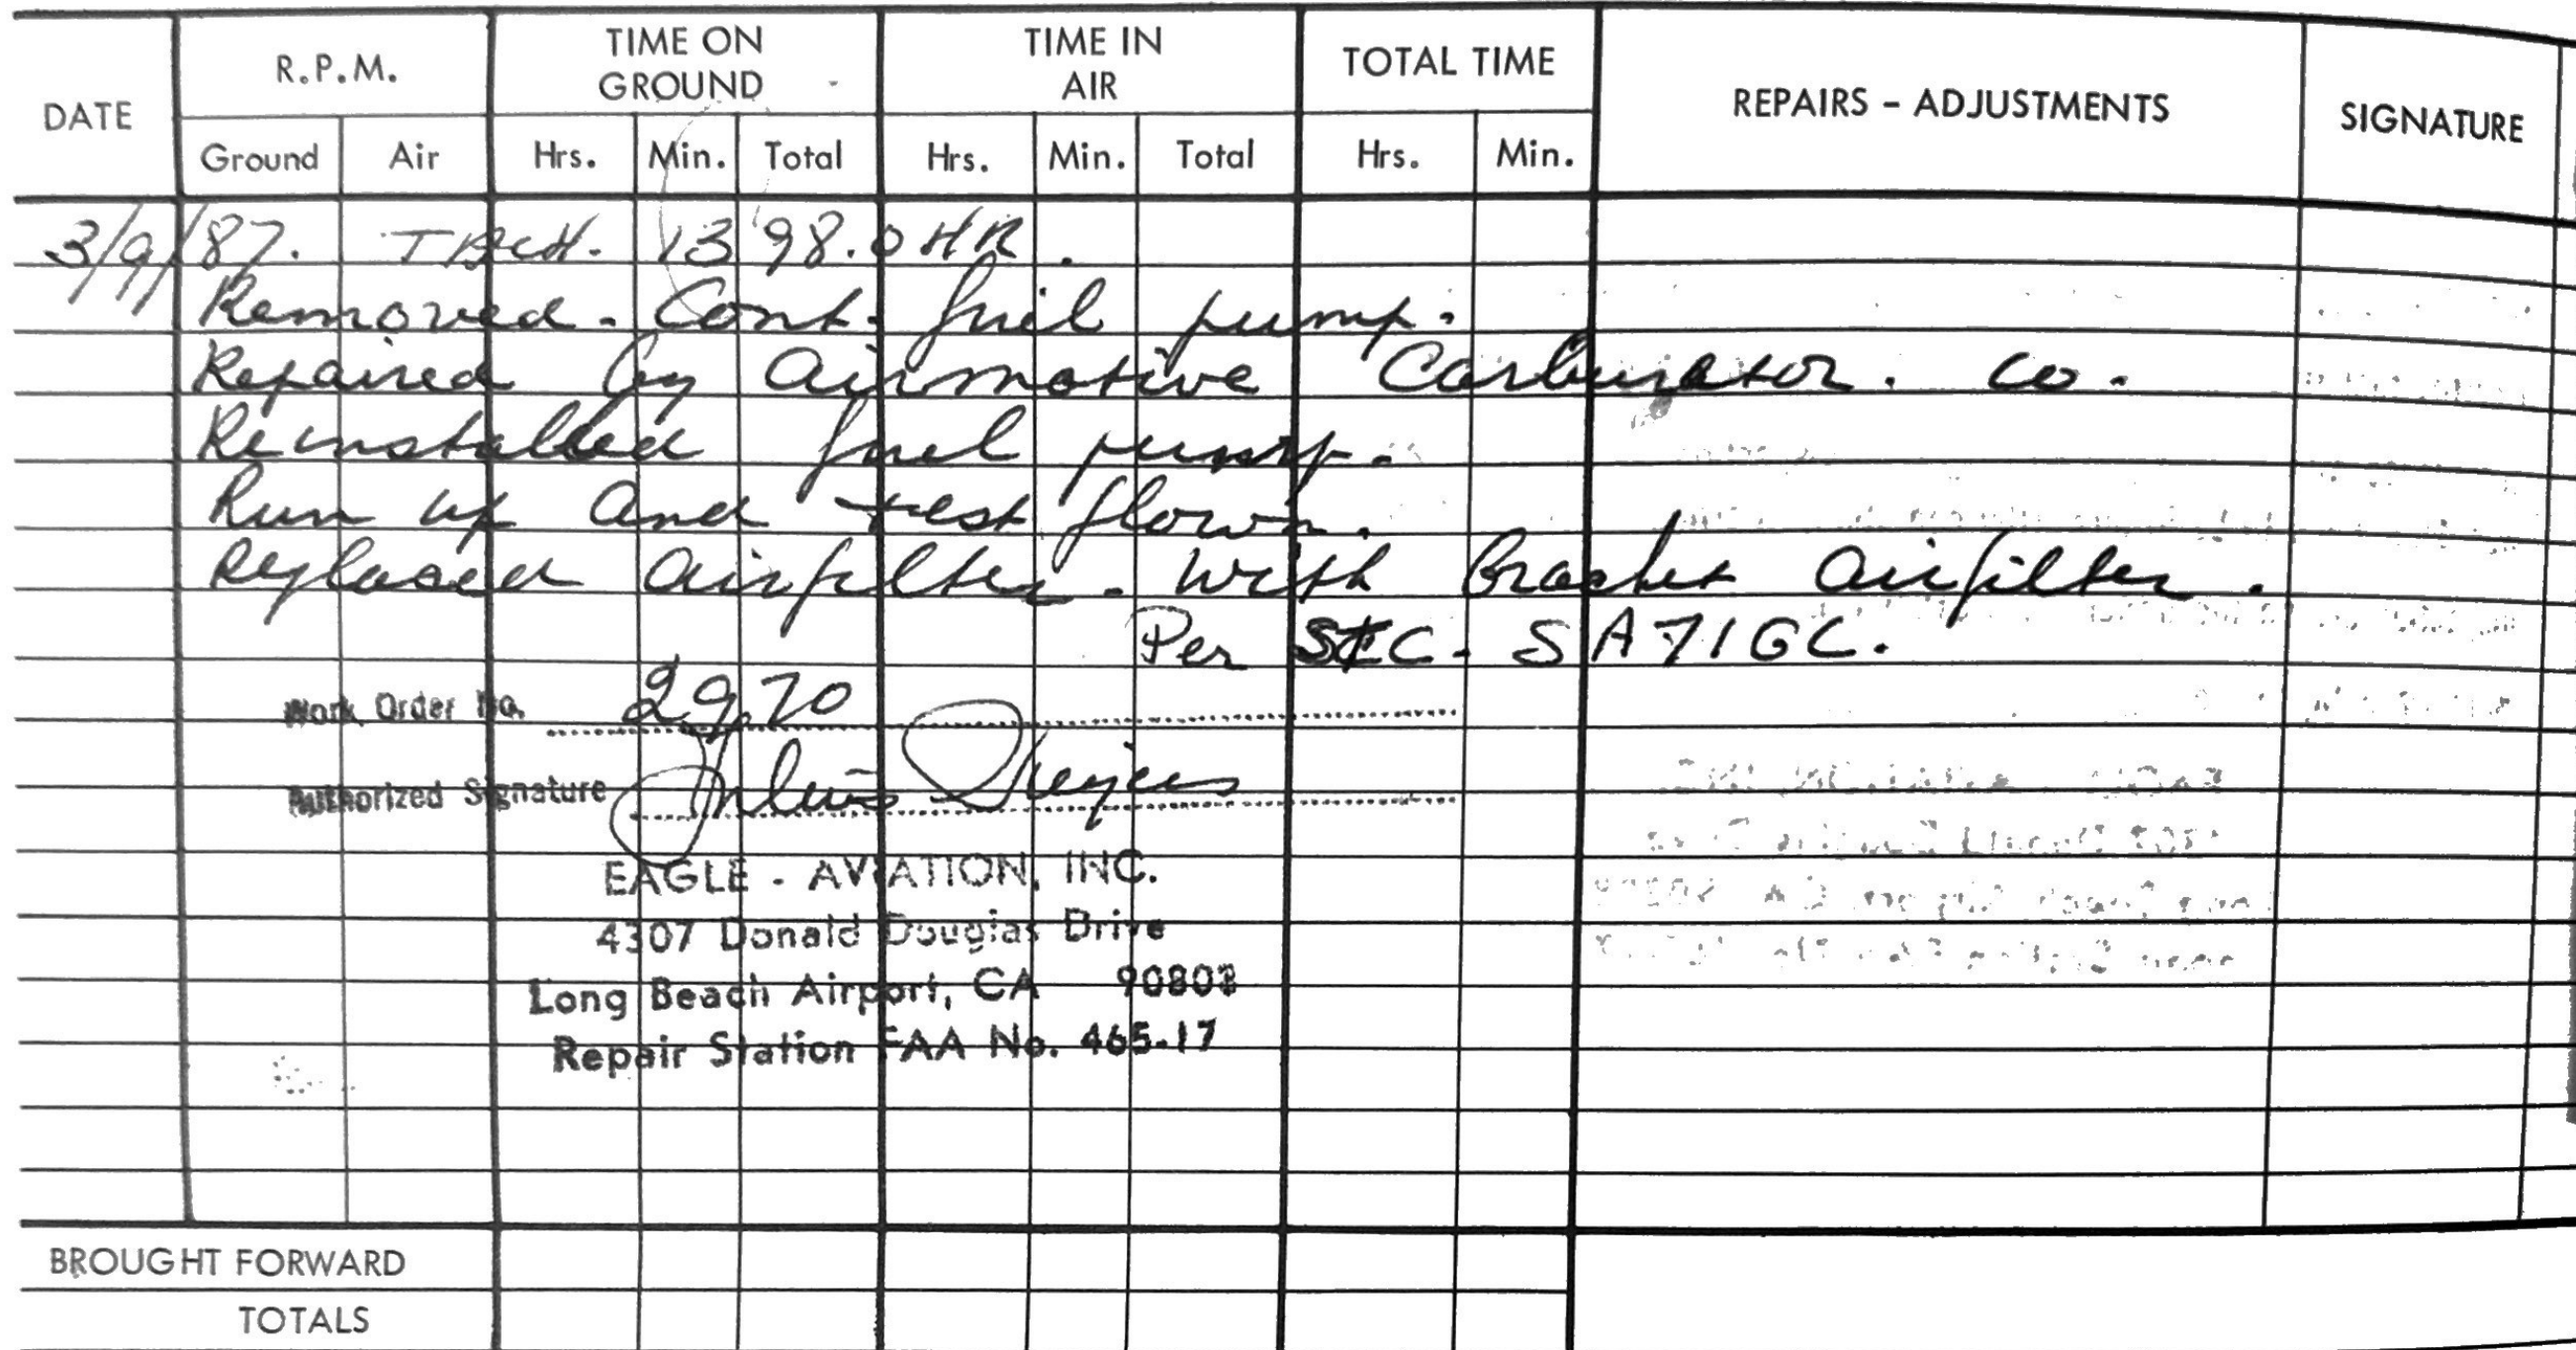 DATE R.P.M. TIME ON GROUND TIME IN AIR TOTAL TIME REPAIRS - ADJUSTMENTS SIGNATURE
Ground Air Hrs. Min. Total Hrs. Min. Total Hrs. Min.
3/9/87. TACH. 1398.0 HR.
Removed. Cont. fuel pump.
Repaired by Airmotive Carburator. co.
Reinstalled fuel pump.
Run up and test flown.
Replaced airfilter. with Bracket airfilter.
Per STC. SA71GC.
Work Order No. 2970
Authorized Signature
EAGLE - AVIATION, INC.
4307 Donald Douglas Drive
Long Beach Airport, CA 90808
Repair Station FAA No. 465-17
BROUGHT FORWARD
TOTALS